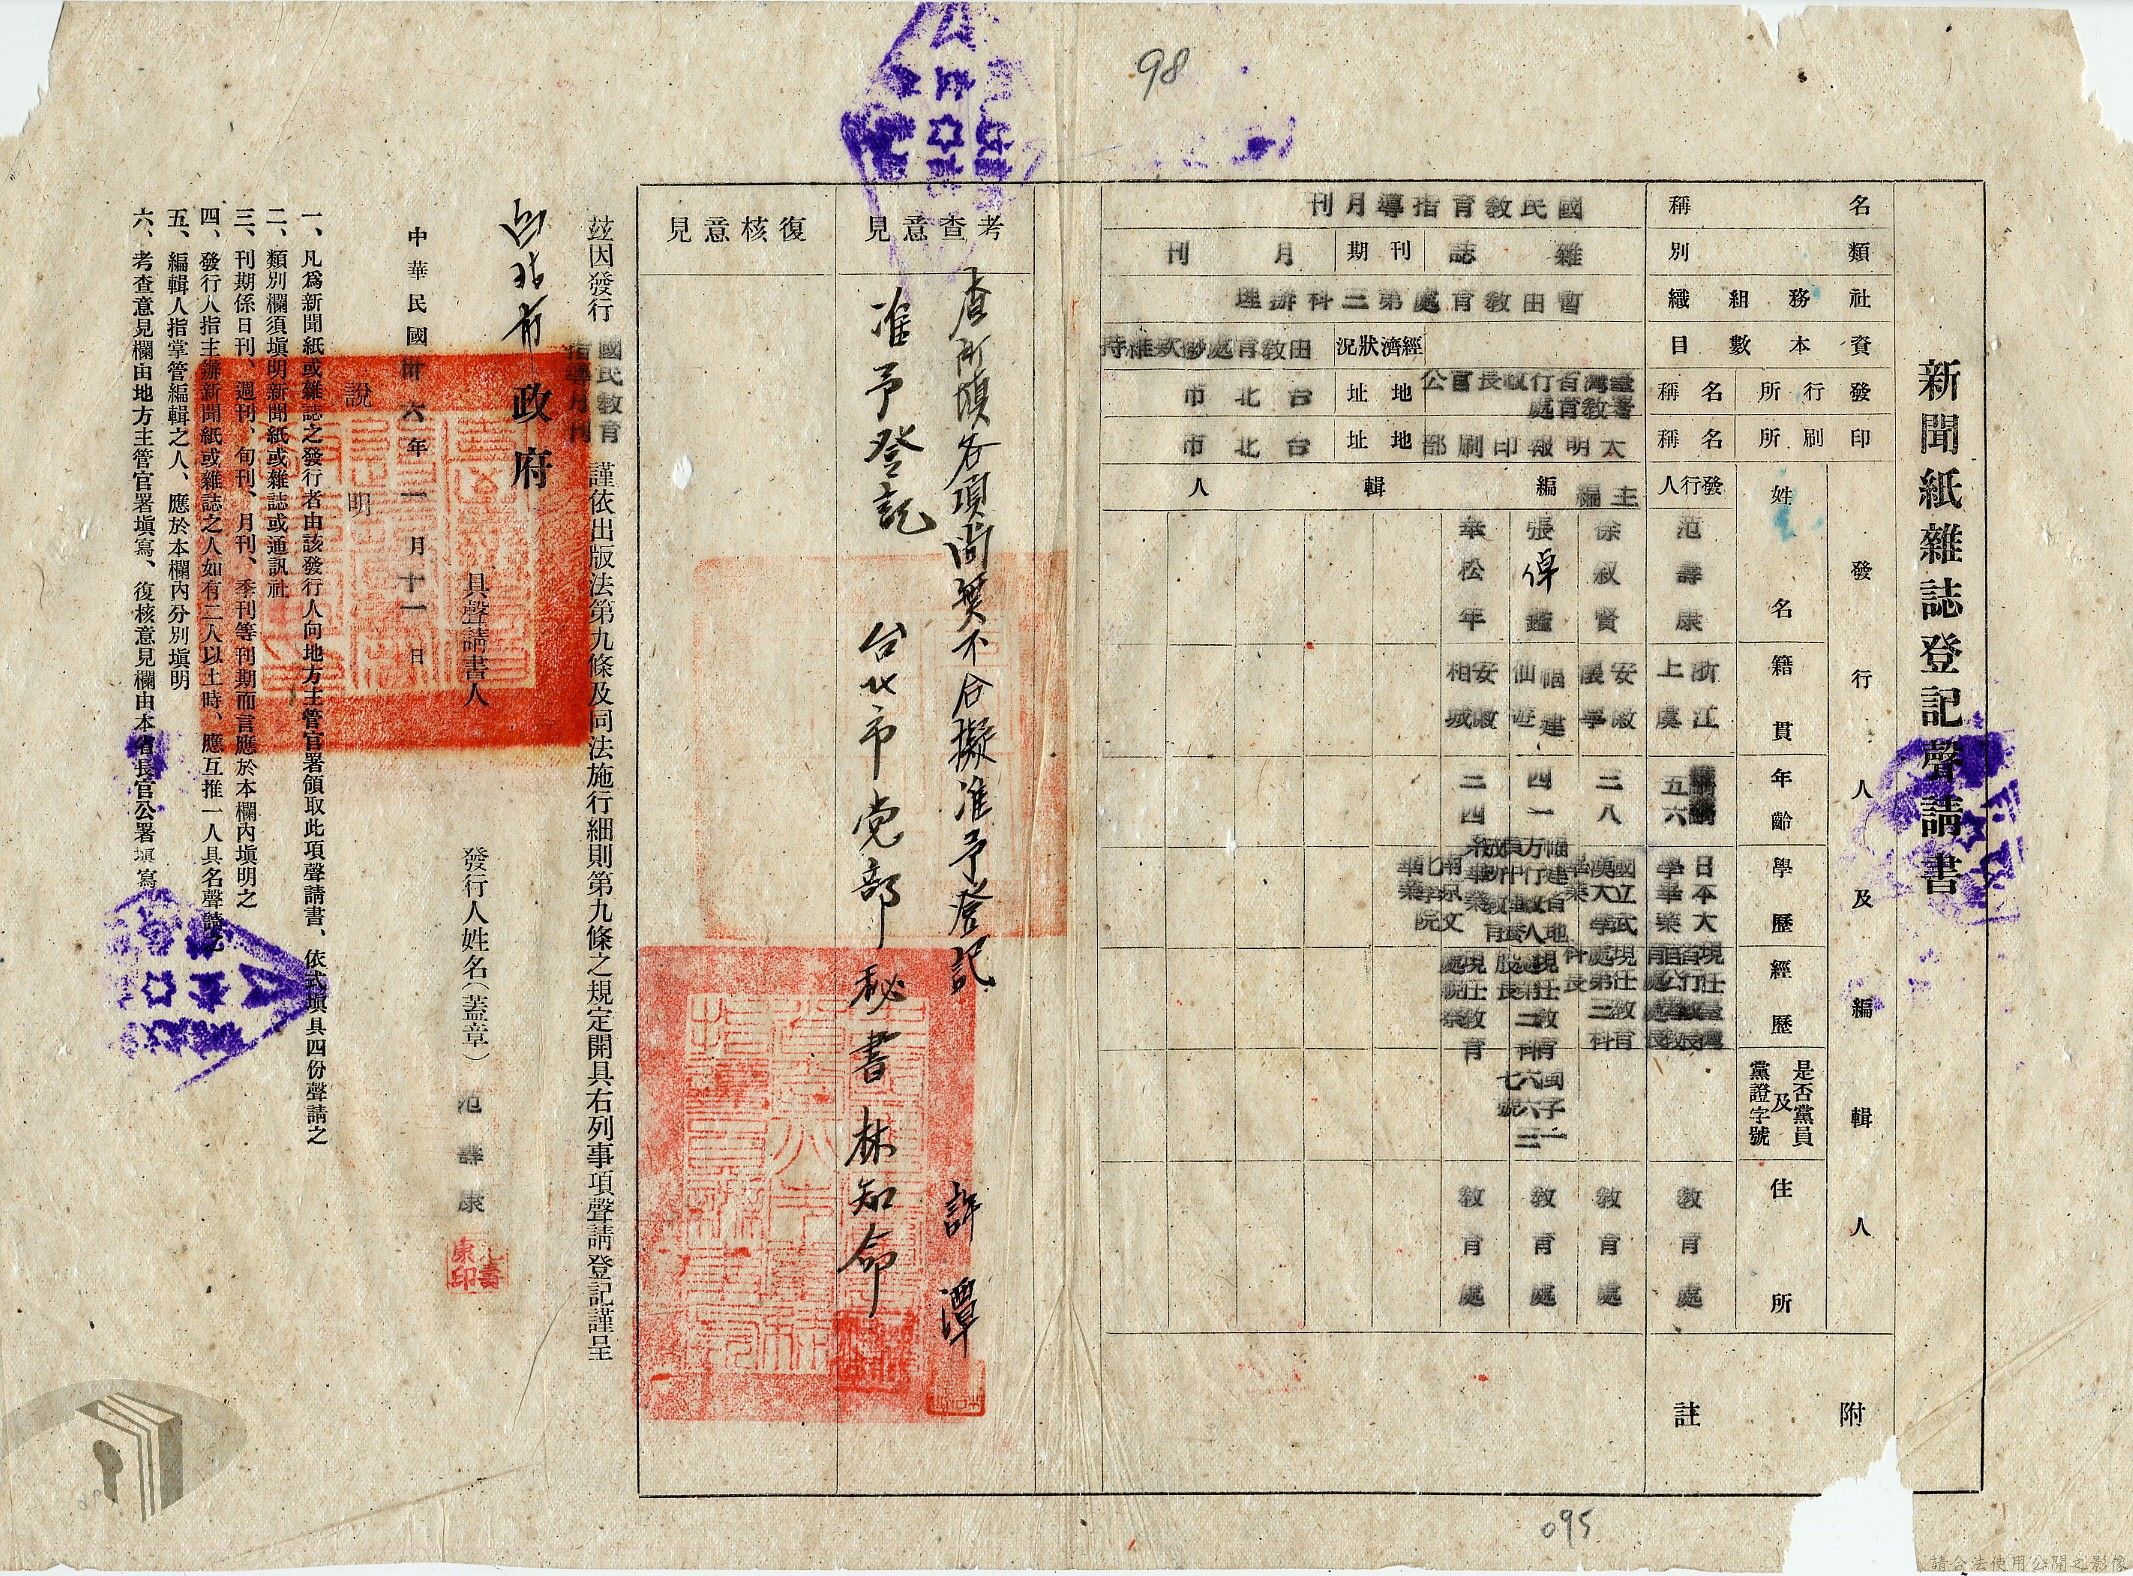 98
新聞紙雜誌登記聲請書
名稱
國民教育指導月刊
類別
雜誌
刊期
月刊
社務組織
暫由教育處第三科辦理
資本數目
經濟狀況
由教育處撥款維持
發行所
名稱
臺灣省行政長官公署教育處
地址
台北市
印刷所
名稱
大明報印刷部
地址
台北市
發行人及編輯人
姓名
籍貫
年齡
學歷
經歷
是否黨員及黨證字號
住所
發行人
范壽康
浙江上虞
五六
日本大學畢業
現任臺灣省行政長官公署教育處處長
教育處
主編
徐叙賢
安徽
三八
國立武漢大學畢業
現任教育處第三科科長
教育處
編輯人
張倬鑑
福建仙遊
四一
現任教育處第二科股長
閩子一六六二七號
教育處
華松年
安徽桐城
二四
南京文化學院畢業
現任教育處視察
教育處
附註
考查意見
查所填各項尚無不合擬准予登記
許潭
准予登記
台北市党部秘書林知命
復核意見
茲因發行國民教育指導月刊謹依出版法第九條及同法施行細則第九條之規定開具右列事項聲請登記謹呈
台北市政府
具聲請書人
發行人姓名(蓋章)范壽康
中華民國卅六年一月十一日
說明
一、凡爲新聞紙或雜誌之發行者由該發行人向地方主管官署領取此項聲請書、依式填具四份聲請之
二、類別欄須填明新聞紙或雜誌或通訊社
三、刊期係日刊、週刊、旬刊、月刊、季刊等刊期而言應於本欄內填明之
四、發行人指主辦新聞紙或雜誌之人如有二人以上時、應互推一人具名聲請之
五、編輯人指掌管編輯之人、應於本欄內分別填明
六、考查意見欄由地方主管官署填寫、復核意見欄由本省長官公署填寫
095
請合法使用公開之影像